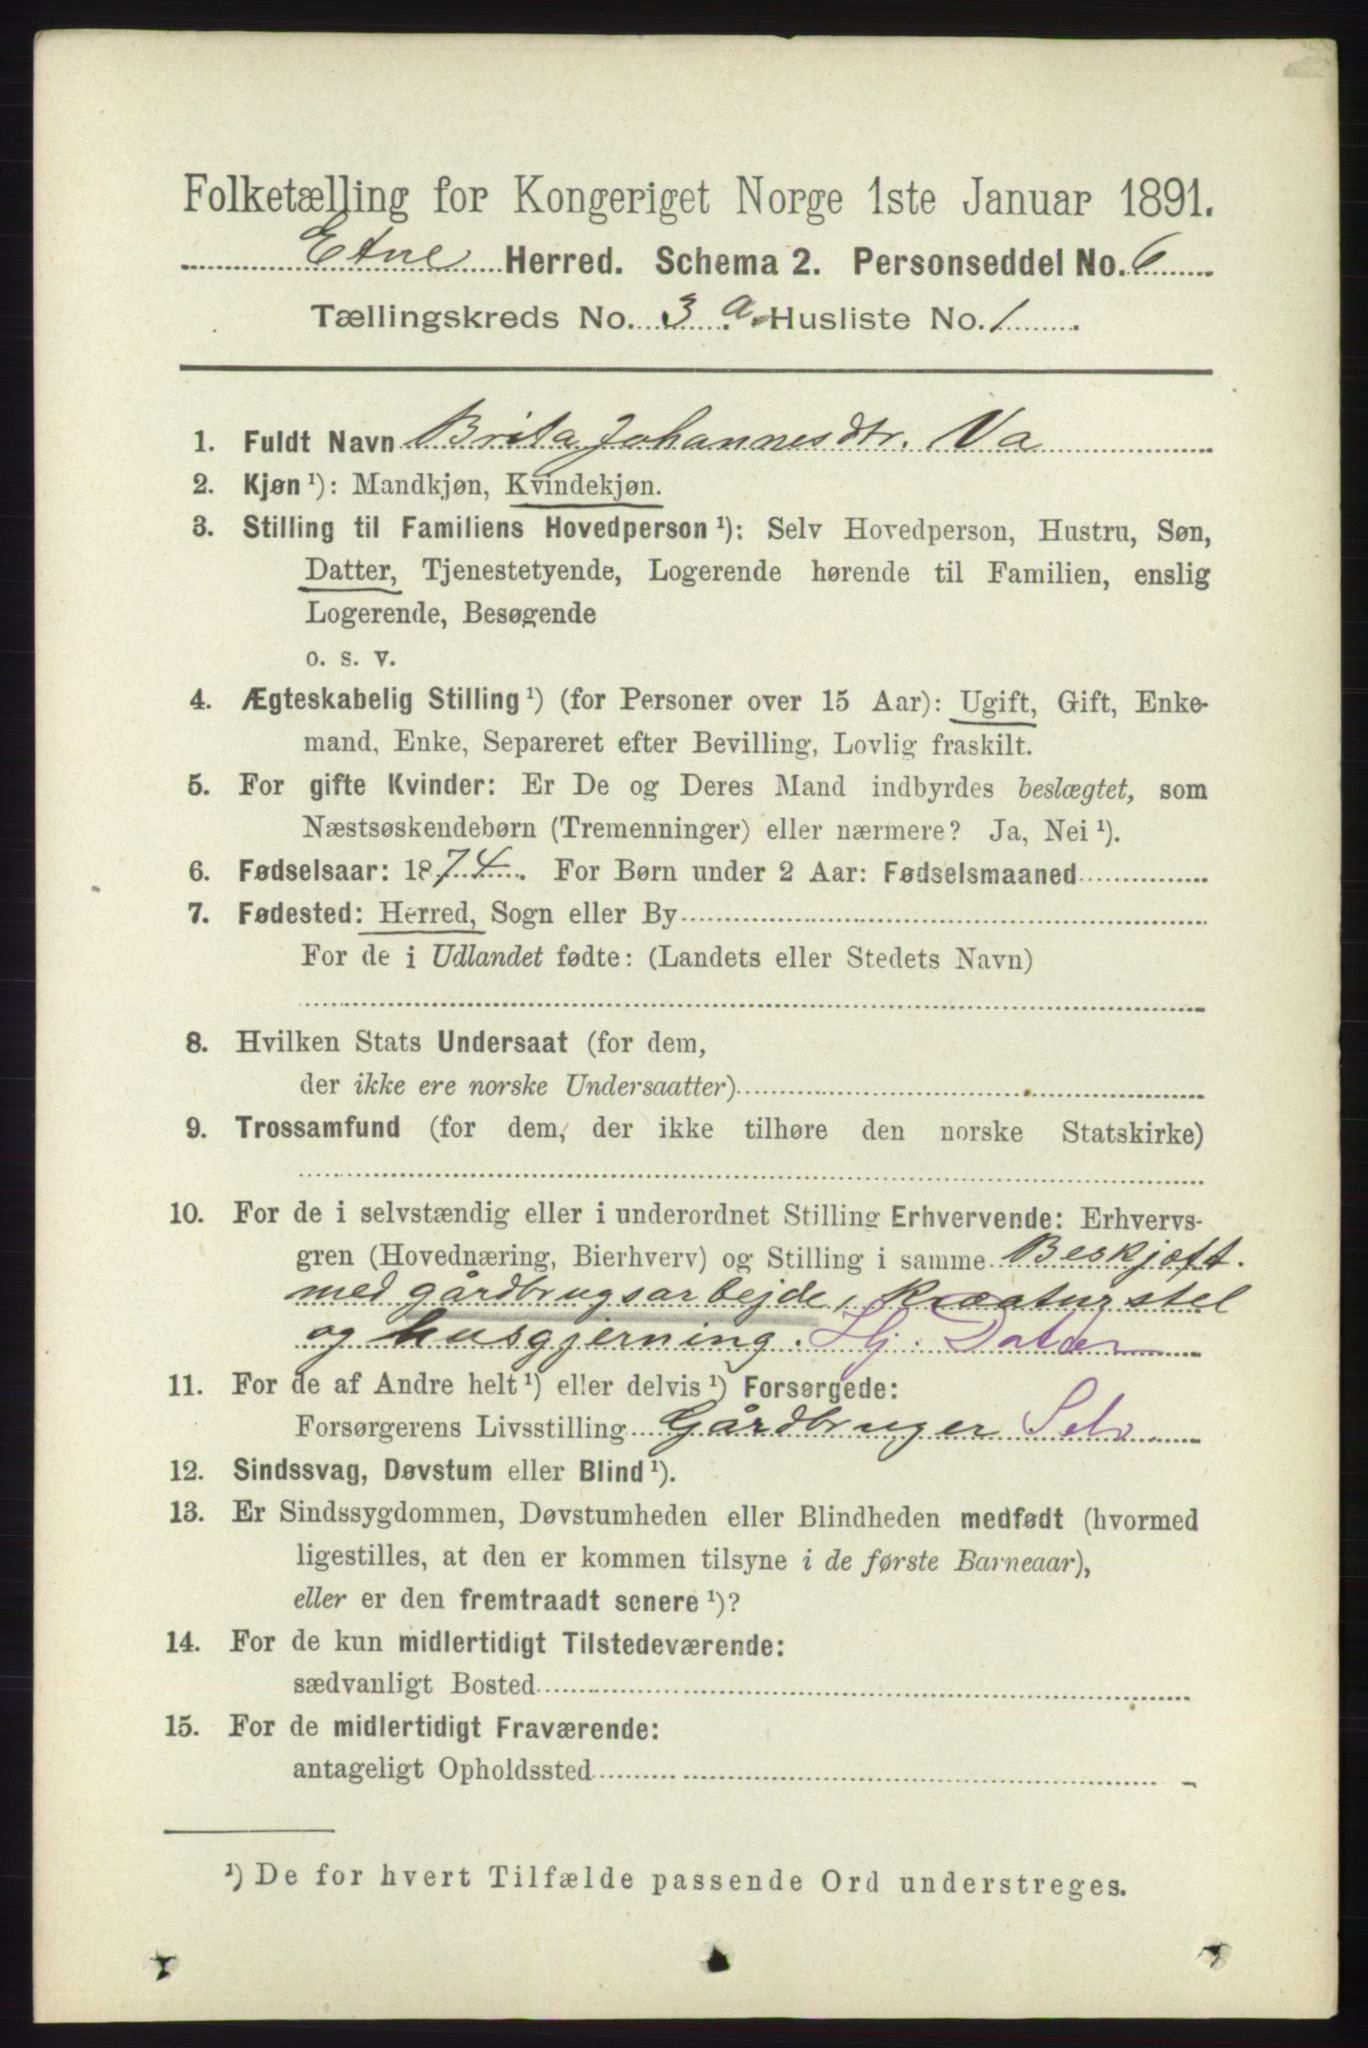 Folketælling for Kongeriget Norge 1ste Januar 1891.
Etne Herred. Schema 2. Personseddel No. 6
Tællingskreds No. 3 a. Husliste No. 1
1. Fuldt Navn Brita Johannesdtr. Va
2. Kjøn ¹): Mandkjøn, Kvindekjøn.
3. Stilling til Familiens Hovedperson ¹): Selv Hovedperson, Hustru, Søn,
Datter, Tjenestetyende, Logerende hørende til Familien, enslig
Logerende, Besøgende
o. s. v.
4. Ægteskabelig Stilling ¹) (for Personer over 15 Aar): Ugift, Gift, Enke-
mand, Enke, Separeret efter Bevilling, Lovlig fraskilt.
5. For gifte Kvinder: Er De og Deres Mand indbyrdes beslægtet, som
Næstsøskendebørn (Tremenninger) eller nærmere? Ja, Nei ¹).
6. Fødselsaar: 1874. For Børn under 2 Aar: Fødselsmaaned
7. Fødested: Herred, Sogn eller By
For de i Udlandet fødte: (Landets eller Stedets Navn)
8. Hvilken Stats Undersaat (for dem,
der ikke ere norske Undersaatter)
9. Trossamfund (for dem, der ikke tilhøre den norske Statskirke)
10. For de i selvstændig eller i underordnet Stilling Erhvervende: Erhvervs-
gren (Hovednæring, Bierhverv) og Stilling i samme Beskjæft.
med gårdbrugsarbejde, kræaturstel
og husgjerning. Hj. Datter
11. For de af Andre helt ¹) eller delvis ¹) Forsørgede:
Forsørgerens Livsstilling Gårdbruger Selv
12. Sindssvag, Døvstum eller Blind ¹).
13. Er Sindssygdommen, Døvstumheden eller Blindheden medfødt (hvormed
ligestilles, at den er kommen tilsyne i de første Barneaar),
eller er den fremtraadt senere ¹)?
14. For de kun midlertidigt Tilstedeværende:
sædvanligt Bosted
15. For de midlertidigt Fraværende:
antageligt Opholdssted
¹) De for hvert Tilfælde passende Ord understreges.